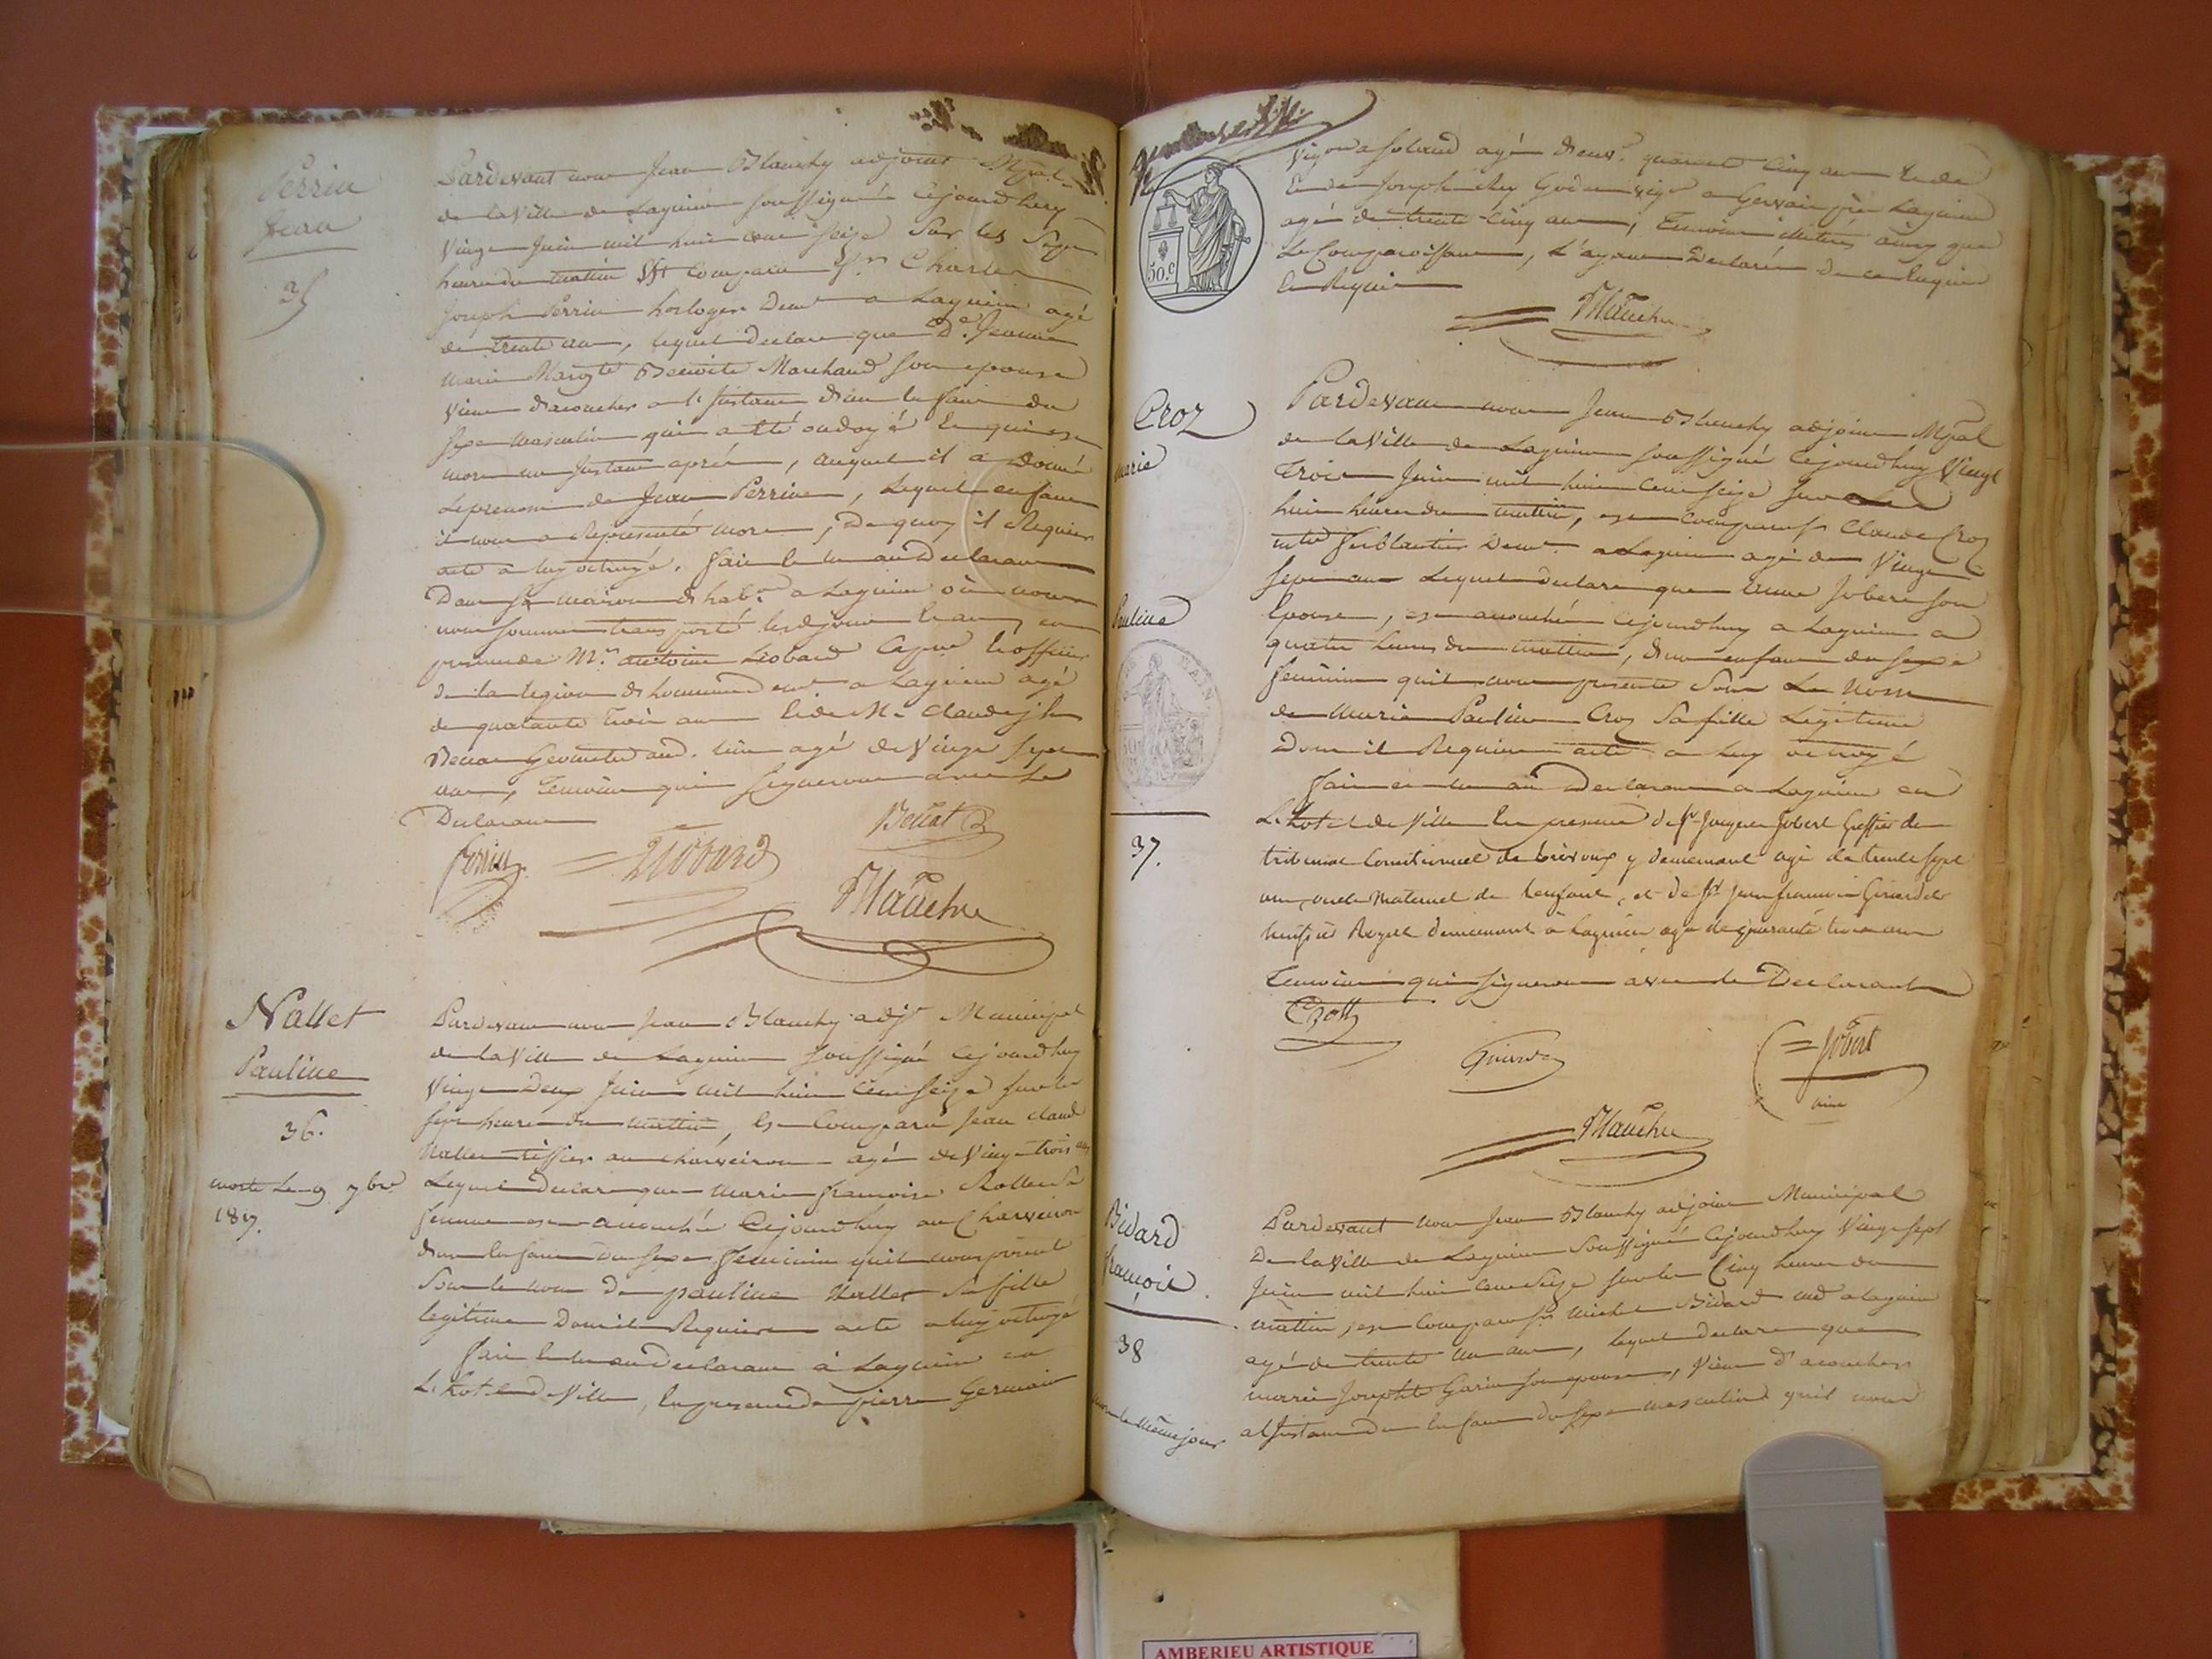 Perrin
Jean
35
Pardevant nous Jean Blanchy adjoint Mpal
de la Ville de Lagnieu soussigné Cejourdhuy
Vingt Juin mil huit cent seize Sur les Sept
heures du matin Est Comparu Sr Charles
Joseph Perrin horloger Demt a Lagnieu agé
de trente ans, lequel declare que De Jeanne
Marie Benoite Marchand son epouse
Vient d'acoucher a l'Instant d'un Enfant du
Sexe masculin qui a été ondoyé Et qui est
mort un Instant aprés, auquel il a Donné
Le prenom de Jean Perrin, Lequel enfant
il nous a Representé mort, De quoy il Requier
acte a luy octroyé. fait Et lu au Declarant
Dans sa maison d'habon a Lagnieu où nous
nous sommes transporté lesd jour Et an, en
presence de Mr antoine Liobard
de la Legion d'honneur demt a Lagnieu agé
de quarante trois ans Et de Mr Claude jh
Geometre aud. lieu agé de Vingt Sept
ans, Temoins qui Signeront avec Le
Declarant
Perrin
Liobard
Blanchy
Nallet
Pauline
36.
morte Le 9 7bre
1817.
Pardevant nous Jean Blanchy adjt Municipal
de la Ville de Lagnieu soussigné Cejourdhuy
Vingt Deux Juin mil huit Cent seize sur les
sept heures du mattin, Est Comparu Jean claude
Nallet tissier au charveiron agé de Vingt trois ans
Lequel declare que Marie francoise Rollet Sa
femme est acouchée Cejourdhuy au Charveiron
d'un Enfant du Sexe Feminin qu'il nous présente
Sous le nom De pauline Nallet Sa fille
legitime Dont il Requiert acte a luy octroyé
fait Et lu au declarant à Lagnieu en
L'hotel de Ville, En presence de pierre Germain
50.c
agé de trente Cinq ans, Temoins illetrés ainsy que
Le Comparoissant, L'ayant Declaré De ce Enquis
Et Requis
Blanchy
Croz
Marie
Pauline
37.
Pardevant nous Jean Blanchy adjoint Mpal
de la Ville de Lagnieu soussigné Cejourdhuy Vingt
Trois Juin mil huit Cent seize Sur Les
huit heures du mattin, est Comparu Sr Claude Croz
ferblantier Demt a Lagnieu agé de Vingt
sept ans Lequel declare que Anne Jobert son
Epouse, est acouchée Cejourdhuy a Lagnieu a
quatre heures du mattin, d'un enfant du sexe
feminin qu'il nous presente Sous Le Nom
de Marie Pauline Croz Sa fille Legitime
Dont il Requiert acte a Luy octroyé
fait et lu au Declarant a Lagnieu en
L'hotel de Ville En presence de Sr Jacques Jobert Greffier du
tribunal Correctionnel de trévoux y demeurant agé de trente sept
ans, oncle maternel de l'enfant, et de Sr Jean francois Girardet
huissier Royal demeurant à Lagnieu agé de quarante trois ans
Temoins qui signeront avec le Declarant
Crott
Jobert
ainé
Blanchy
Bidard
françois.
38
mort le même jour
Pardevant nous Jean Blanchy adjoint Municipal
De la Ville de Lagnieu Soussigné Cejourdhuy Vingt Sept
Juin mil huit Cent Seize sur les Cinq heures du
mattin, est Comparu Sr Michel Bidard md a Lagnieu
agé de trente un ans, lequel declare que
marie Josephte Garin son epouse, Vient d'acoucher
a l'Instant D'un Enfant du Sexe masculin qu'il nous
AMBERIEU ARTISTIQUE